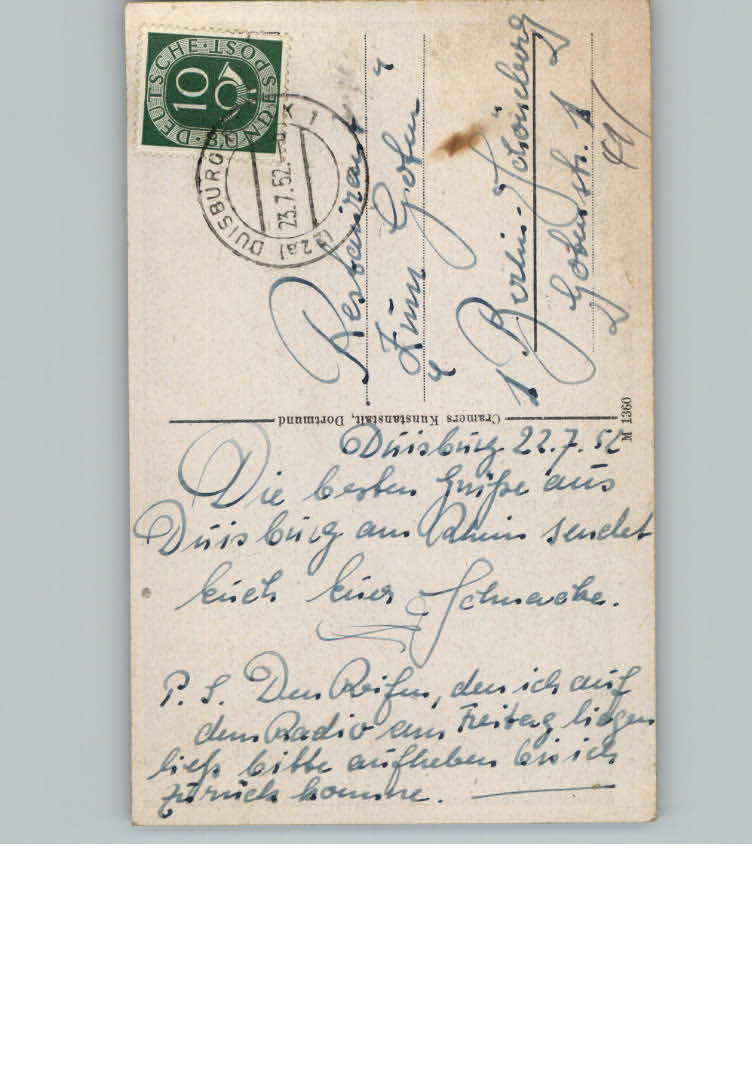 DEUTSCHE BUNDESPOST
10
(22a) DUISBURG 1
23.7.52
Restaurant
"Zum Goten"
1 Berlin-Schöneberg
Gotenstr. 1
Cramers Kunstanstalt, Dortmund
M 1360
Duisburg 22.7.52
Die besten Grüße aus
Duisburg am Rhein sendet
Euch Euer Schwabe.
P. S. Den Reifen, den ich auf
dem Radio am Freitag liegen
ließ bitte aufheben bis ich
zurück komme.